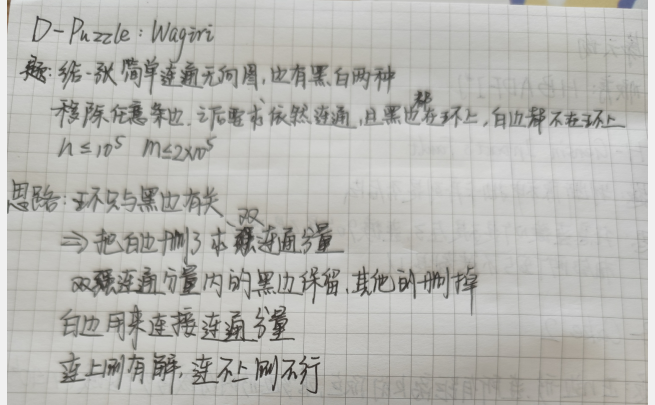 D-Puzzle: Wagiri
题: 给一张简单连通无向图, 边有黑白两种
移除任意条边, 之后要求依然连通, 且黑边都在环上, 白边都不在环上
n≤10⁵ m≤2×10⁵
思路: 环只与黑边有关
⇒ 把白边删了求双连通分量
双连通分量内的黑边保留, 其他的删掉
白边用来连接连通分量
连上则有解, 连不上则不行